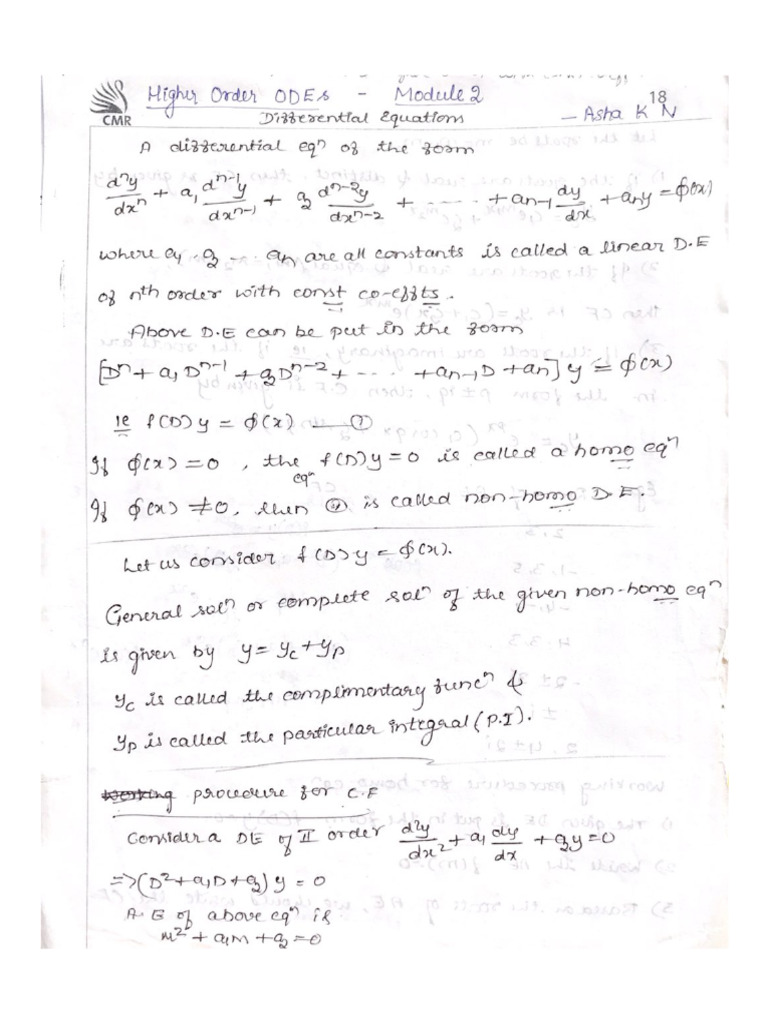 Higher Order ODEs - Module 2
18
CMR
Differential Equations
- Asha K N
A differential eqⁿ of the form
dⁿy/dxⁿ + a₁ dⁿ⁻¹y/dxⁿ⁻¹ + a₂ dⁿ⁻²y/dxⁿ⁻² + ..... + aₙ₋₁ dy/dx + aₙy = φ(x)
where a₁, a₂ -- aₙ are all constants is called a linear D.E
of nth order with const co-effts.
Above D.E can be put in the form
[Dⁿ + a₁Dⁿ⁻¹ + a₂Dⁿ⁻² + .... + aₙ₋₁D + aₙ] y = φ(x)
ie f(D)y = φ(x) —— ①
If φ(x) = 0, the eqⁿ f(D)y = 0 is called a homo eqⁿ
If φ(x) ≠ 0, then is called non-homo D.E.
Let us consider f(D)y = φ(x).
General solⁿ or complete solⁿ of the given non-homo eqⁿ
is given by y = y_c + y_p
y_c is called the complimentary funcⁿ &
y_p is called the particular integral (P.I).
Working procedure for C.F
Consider a DE of II order d²y/dx² + a₁ dy/dx + a₂y = 0
=> (D² + a₁D + a₂) y = 0
A.E of above eqⁿ is
m² + a₁m + a₂ = 0